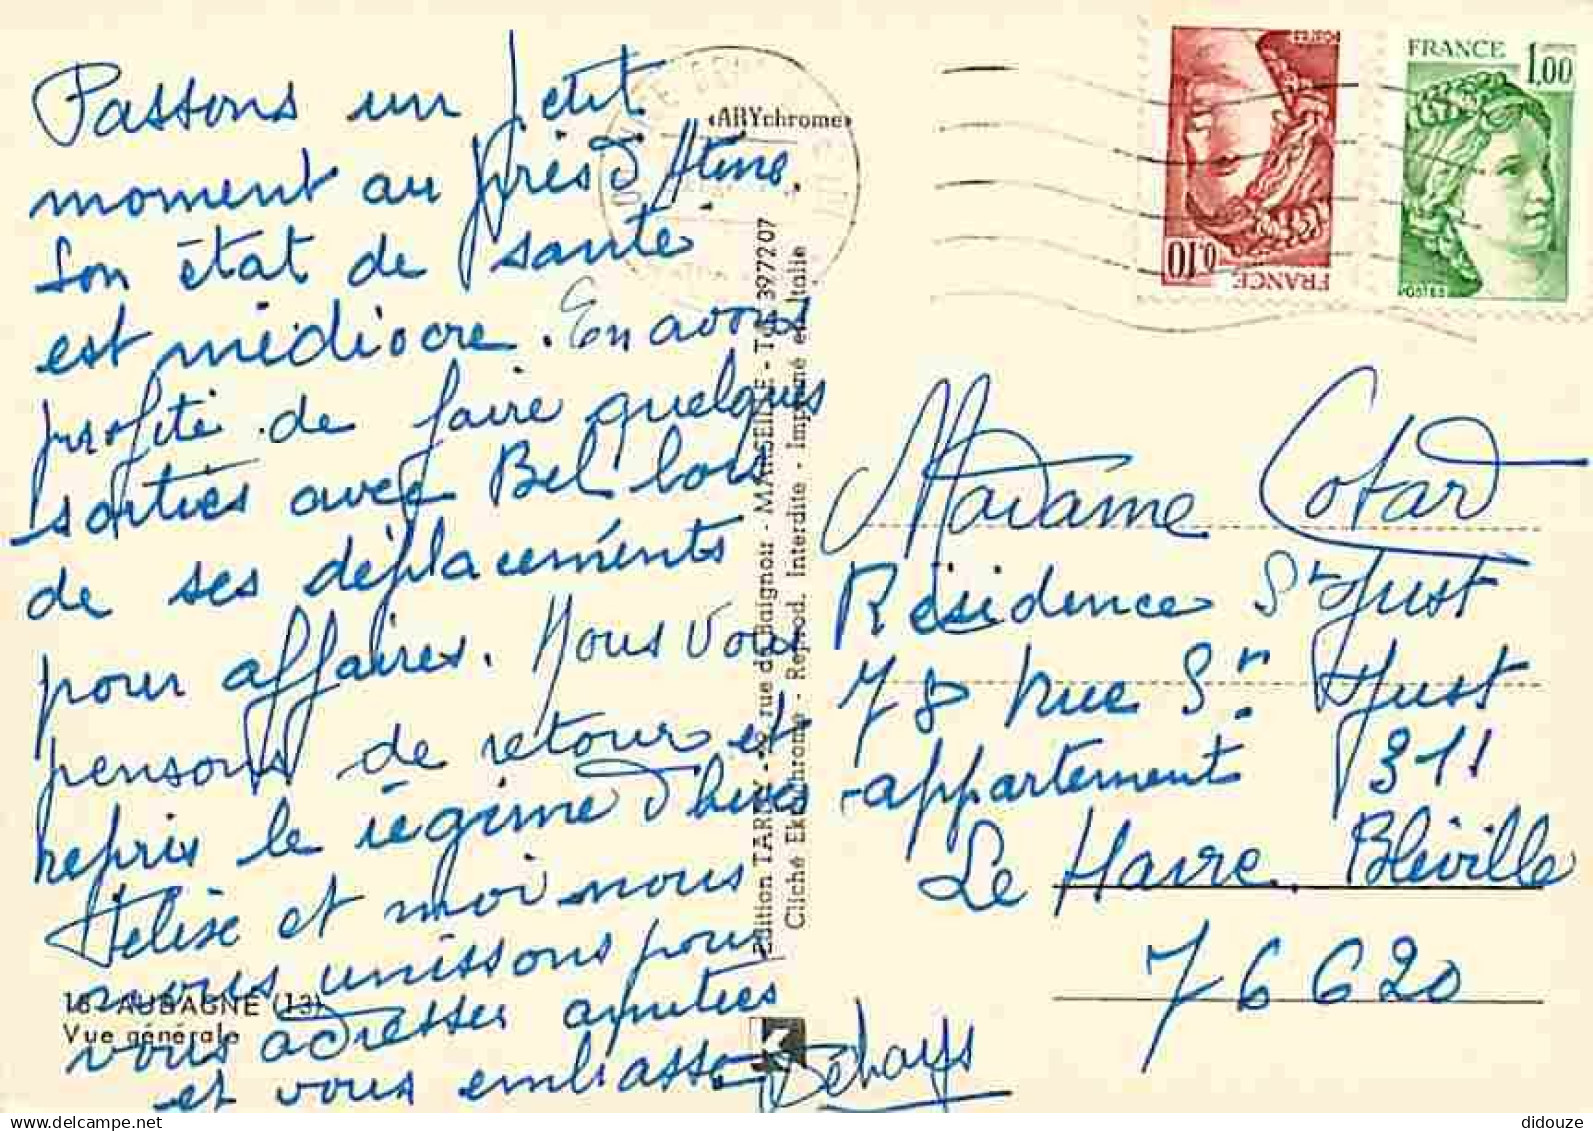 Passons un petit
moment au près d'Atime.
son état de santé
est médiocre. En avons
profité de faire quelques
sorties avec Bel bois
de ses déplacements
pour affaires. Nous vous
pensons de retour et
repris le régime d'hiver
Félise et moi nous
nous unissons pour
vous adresser amitiés
et vous embrasse
Dehays
16 - AUBAGNE (13)
Vue générale
«ARYchrome»
Edition TARDY - rue du Baignoir - MARSEILLE - Tél. 397207
Cliché Ektachrome - Reprod. Interdite - Imprimé en Italie
POSTES
0,10
FRANCE
FRANCE
1,00
POSTES
Madame Cotard
Résidence St Just
78 rue St Just
appartement 311
Le Havre. Bléville
76620
didouze